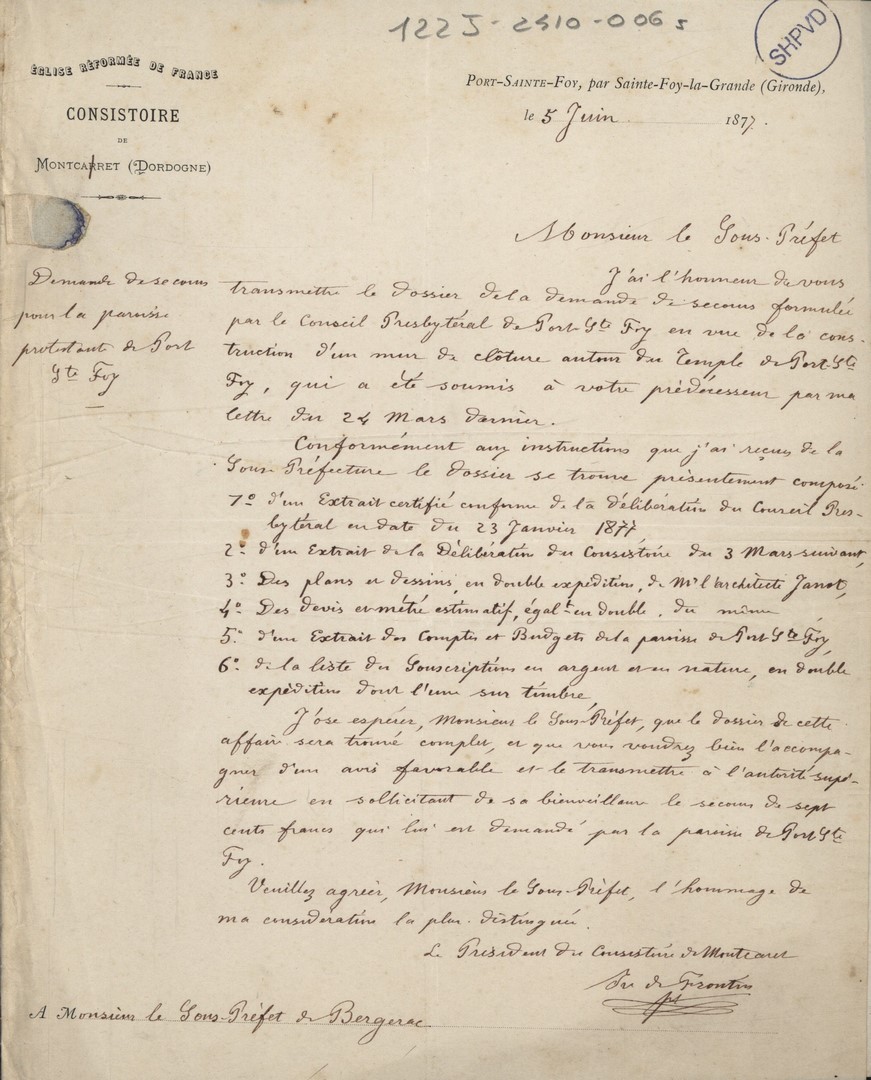 122J-2510-006 s
SHPVD
ÉGLISE RÉFORMÉE DE FRANCE
CONSISTOIRE
DE
MONTCARRET (DORDOGNE)
PORT-SAINTE-FOY, par Sainte-Foy-la-Grande (Gironde),
le 5 Juin 1877.
Monsieur le Sous-Préfet
Demande de secours
pour la paroisse
protestante de Port
Ste Foy
J'ai l'honneur de vous
transmettre le dossier de la demande de secours formulée
par le Conseil Presbytéral de Port-Ste Foy en vue de la cons-
truction d'un mur de clôture autour du Temple de Port-Ste
Foy, qui a été soumis à votre prédécesseur par ma
lettre du 24 Mars dernier.
Conformément aux instructions que j'ai reçues de la
Sous-Préfecture le dossier se trouve présentement composé:
1º d'un Extrait certifié conforme de la délibération du Conseil Pres-
bytéral en date du 23 Janvier 1877
2º d'un Extrait de la Délibération du Consistoire du 3 Mars suivant,
3º Des plans et dessins, en double expédition, de Mr l'architecte Janot,
4º Des devis et métré estimatif, égalt en double, du même
5º d'un Extrait des Comptes et Budgets de la paroisse de Port-Ste Foy,
6º de la liste des Souscriptions en argent et en nature, en double
expédition dont l'une sur timbre
J'ose espérer, Monsieur le Sous-Préfet, que le dossier de cette
affaire sera trouvé complet, et que vous voudrez bien l'accompa-
gner d'un avis favorable et le transmettre à l'autorité supé-
rieure en sollicitant de sa bienveillance le secours de sept
cents francs qui lui est demandé par la paroisse de Port-Ste
Foy.
Veuillez agréer, Monsieur le Sous-Préfet, l'hommage de
ma considération la plus distinguée.
Le Président du Consistoire de Montcaret
de Frontin
A Monsieur le Sous-Préfet de Bergerac.